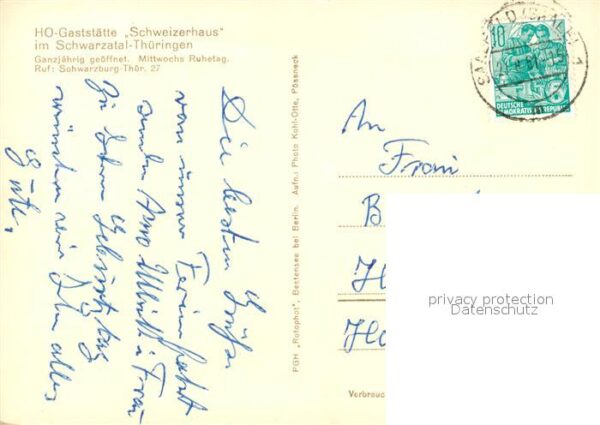 HO-Gaststätte „Schweizerhaus"
im Schwarzatal-Thüringen
Ganzjährig geöffnet. Mittwochs Ruhetag.
Ruf: Schwarzburg-Thür. 27
Die besten Grüße
von unserer Ferienfahrt
senden Frau
Zu Ihrem Geburtstag
wünschen wir Ihnen alles
Gute.
PGH „Rotophot", Bestensee bei Berlin. Aufn.: Photo Kohl-Otte, Pössneck
10
DEUTSCHE
DEMOKRATISCHE REPUBLIK
An
B
H
Ha
privacy protection
Datenschutz
Verbrauc